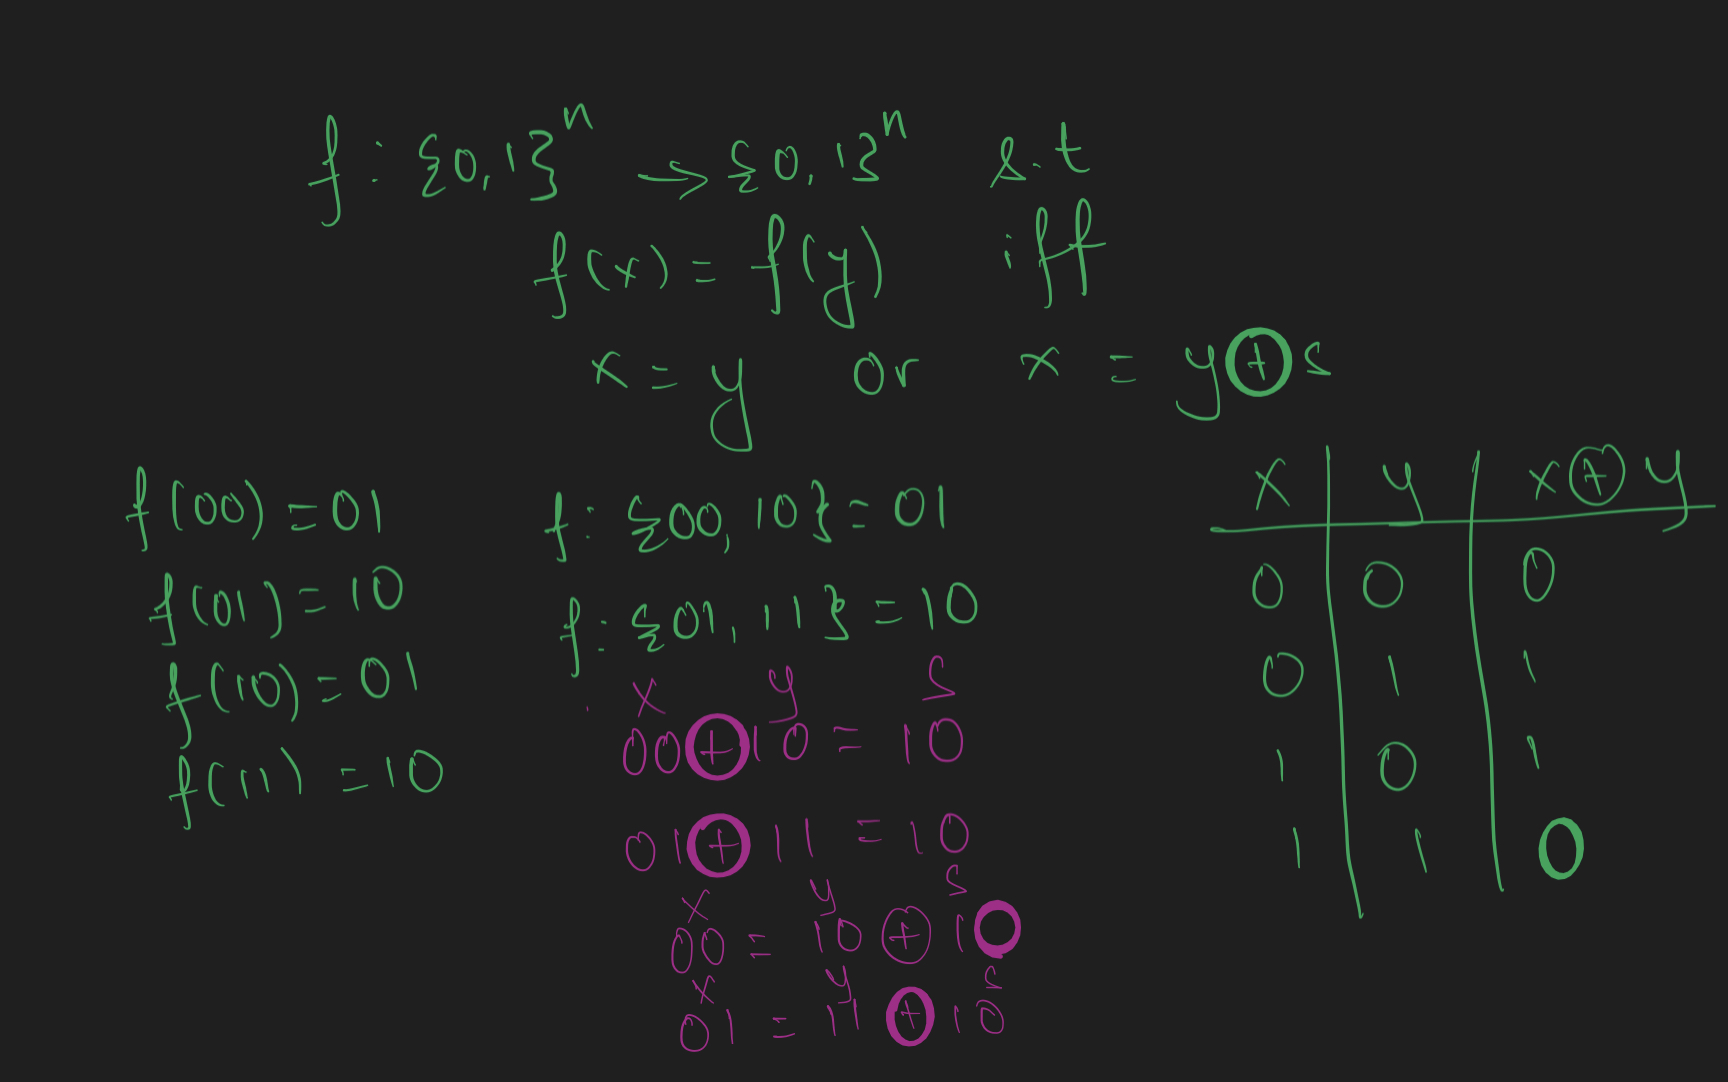 f : {0,1}ⁿ → {0,1}ⁿ s.t
f(x) = f(y) iff
x = y or x = y ⊕ s
f(00) = 01
f(01) = 10
f(10) = 01
f(11) = 10
f : {00, 10} = 01
f : {01, 11} = 10
x y s
00 ⊕ 10 = 10
01 ⊕ 11 = 10
x y s
00 = 10 ⊕ 10
x y s
01 = 11 ⊕ 10
x y x ⊕ y
0 0 0
0 1 1
1 0 1
1 1 0